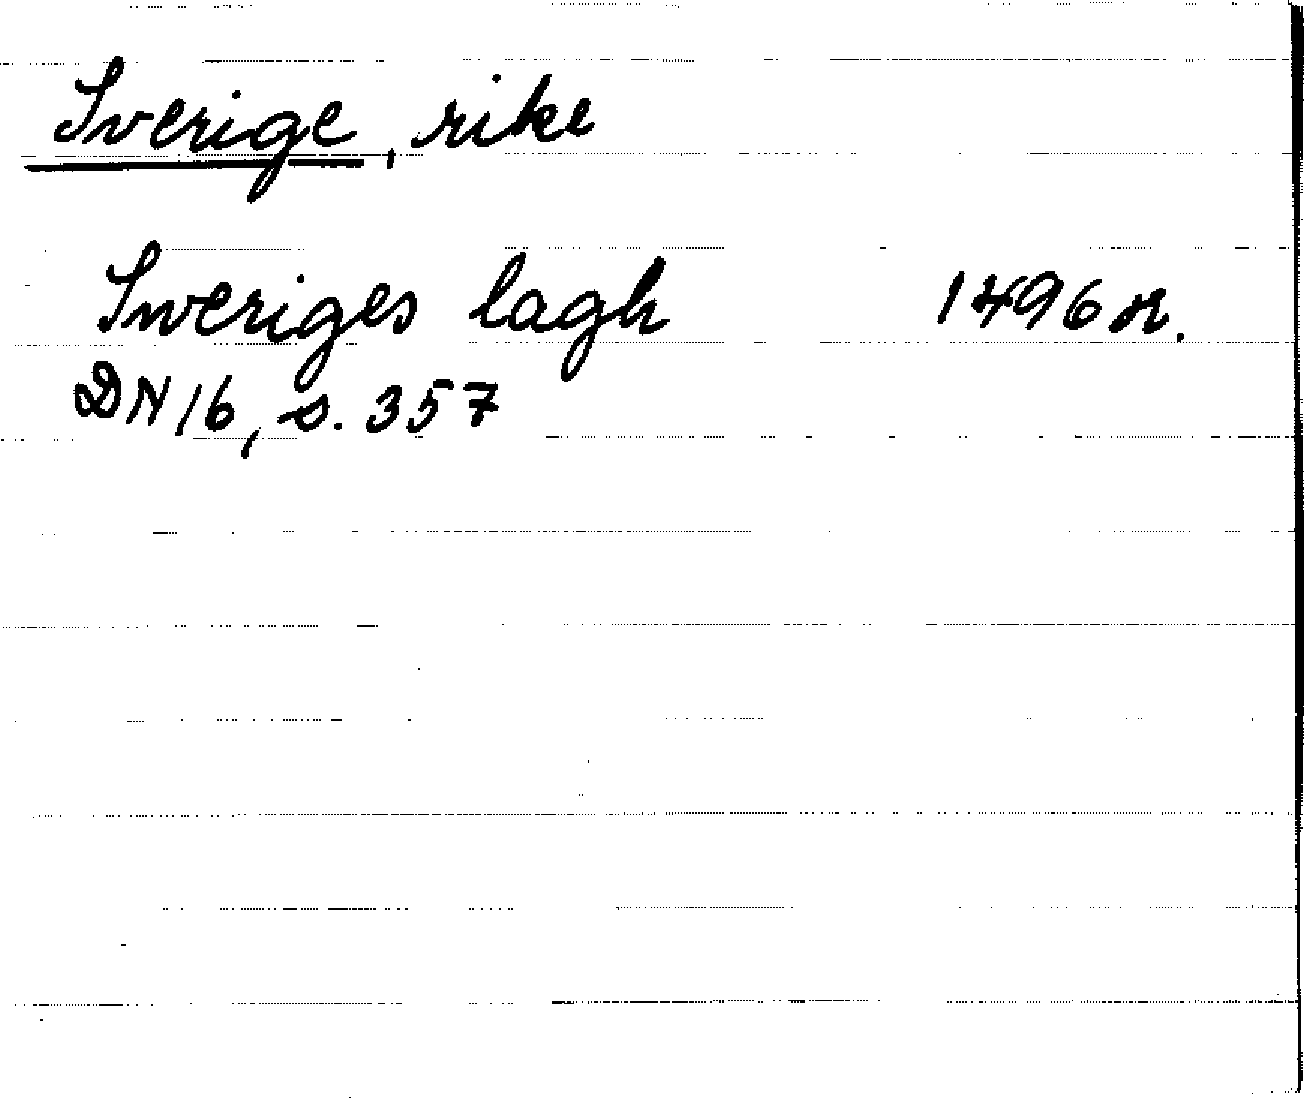 Sverige, rike
Sweriges lagh 1496 or.
DN 16, s. 357